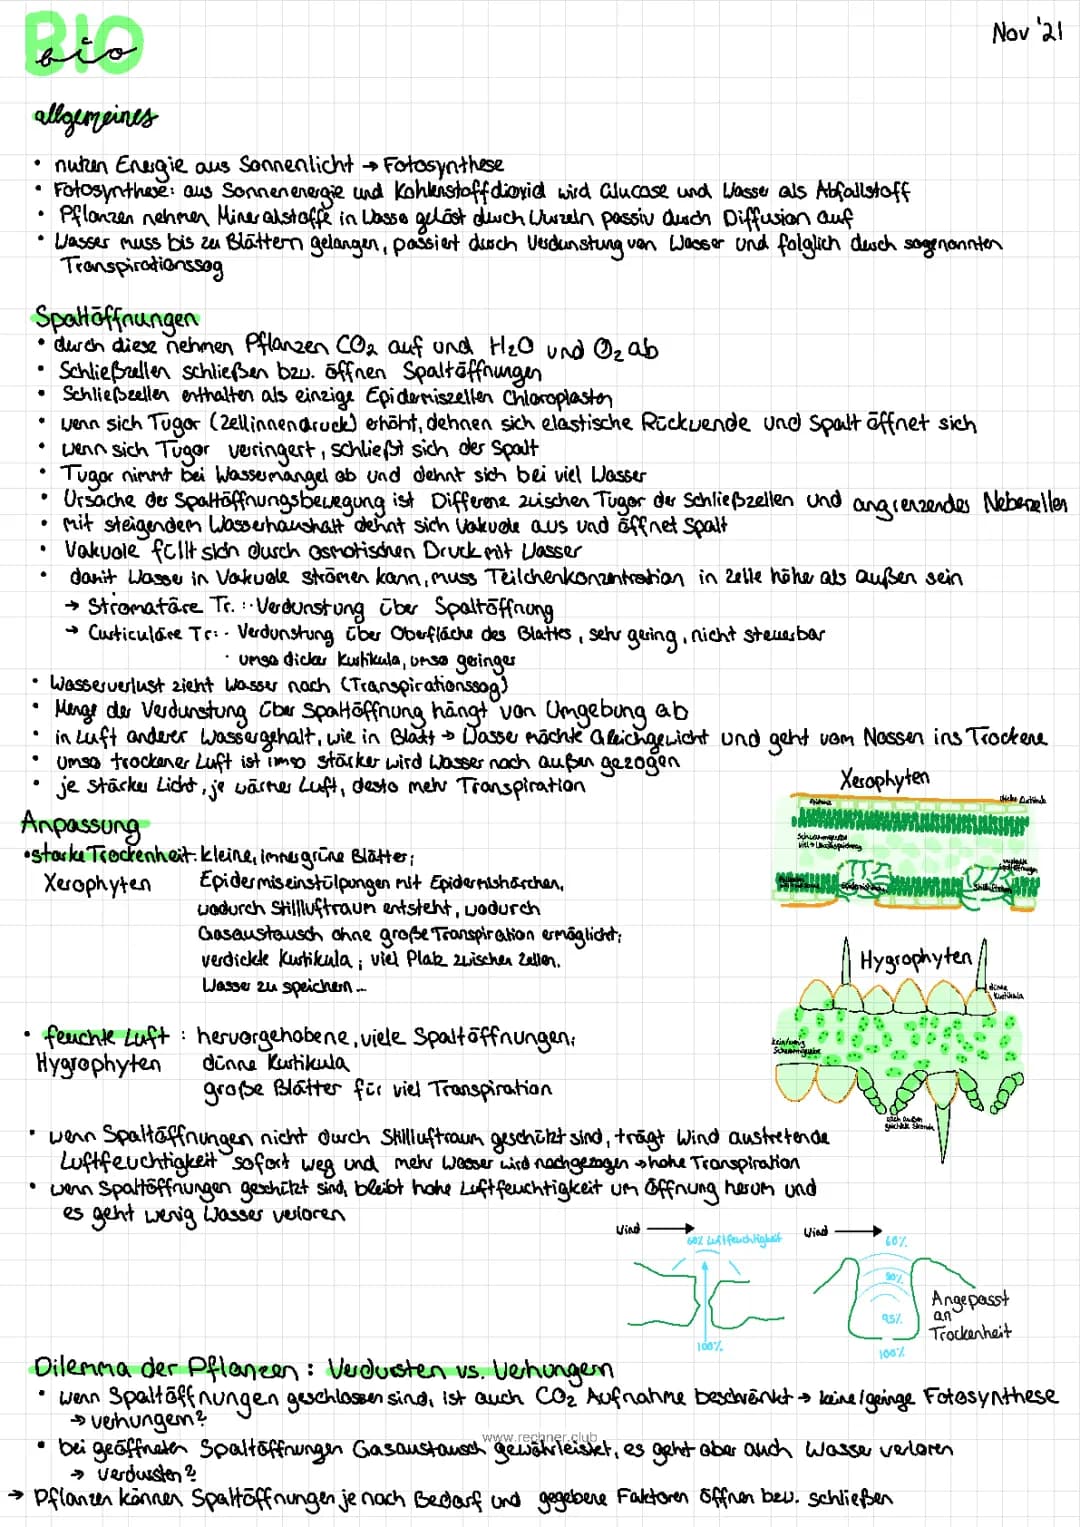 BIO
bio
Nov '21
allgemeines
• nutzen Energie aus Sonnenlicht → Fotosynthese
• Fotosynthese: aus Sonnenenergie und Kohlenstoffdioxid wird Glucose und Wasser als Abfallstoff
• Pflanzen nehmen Mineralstoffe in Wasser gelöst durch Wurzeln passiv durch Diffusion auf
• Wasser muss bis zu Blättern gelangen, passiert durch Verdunstung von Wasser und folglich durch sogenannten
Transpirationssog
Spaltöffnungen
• durch diese nehmen Pflanzen CO₂ auf und H₂O und O₂ ab
• Schließzellen schließen bzw. öffnen Spaltöffnungen
• Schließzellen enthalten als einzige Epidermiszellen Chloroplasten
• wenn sich Tugor (Zellinnendruck) erhöht, dehnen sich elastische Rückwende und Spalt öffnet sich
• wenn sich Tugor verringert, schließt sich der Spalt
• Tugor nimmt bei Wassermangel ab und dehnt sich bei viel Wasser
• Ursache der Spaltöffnungsbewegung ist Differenz zwischen Tugor der Schließzellen und angrenzendes Nebenzellen
• mit steigendem Wasserhaushalt dehnt sich Vakuole aus und öffnet Spalt
• Vakuole füllt sich durch osmotischen Druck mit Wasser
• damit Wasser in Vakuole strömen kann, muss Teilchenkonzentration in Zelle höher als außen sein
→ Stromatäre Tr.: · Verdunstung über Spaltöffnung
→ Curticuläre Tr.: · Verdunstung über Oberfläche des Blattes, sehr gering, nicht steuerbar
· umso dicker Kutikula, umso geringer
• Wasserverlust zieht Wasser nach (Transpirationssog)
• Menge der Verdunstung über Spaltöffnung hängt von Umgebung ab
• in Luft anderer Wassergehalt, wie in Blatt → Wasser möchte Gleichgewicht und geht vom Nassen ins Trockene
• umso trockener Luft ist umso stärker wird Wasser nach außen gezogen
• je stärker Licht, je wärmer Luft, desto mehr Transpiration
Xerophyten
Epidermis
dicke Kutikula
Schwammgewebe
viel → Wasserspeicherung
Stillluftraum
Anpassung
• starke Trockenheit: kleine, immergrüne Blätter;
Xerophyten Epidermiseinstülpungen mit Epidermishärchen,
wodurch Stillluftraum entsteht, wodurch
Gasaustausch ohne große Transpiration ermöglicht;
verdickte Kutikula; viel Platz zwischen Zellen,
Wasser zu speichern...
Hygrophyten
dünne
Kutikula
kein/wenig
Schwammgewebe
nach außen
• feuchte Luft : hervorgehobene, viele Spaltöffnungen;
Hygrophyten dünne Kutikula
große Blätter für viel Transpiration
• wenn Spaltöffnungen nicht durch Stillluftraum geschützt sind, trägt Wind austretende
Luftfeuchtigkeit sofort weg und mehr Wasser wird nachgezogen → hohe Transpiration
• wenn Spaltöffnungen geschützt sind, bleibt hohe Luftfeuchtigkeit um Öffnung herum und
es geht wenig Wasser verloren
Wind →
60% Luftfeuchtigkeit
100%
Wind →
60%
80%
95%
100%
Angepasst
an
Trockenheit
Dilemma der Pflanzen : Verdursten vs. Verhungern
• wenn Spaltöffnungen geschlossen sind, ist auch CO₂ Aufnahme beschränkt → keine/geringe Fotosynthese
→ verhungern?
www.rechner.club
• bei geöffneten Spaltöffnungen Gasaustausch gewährleistet, es geht aber auch Wasser verloren
→ verdursten?
→ Pflanzen können Spaltöffnungen je nach Bedarf und gegebene Faktoren öffnen bzw. schließen